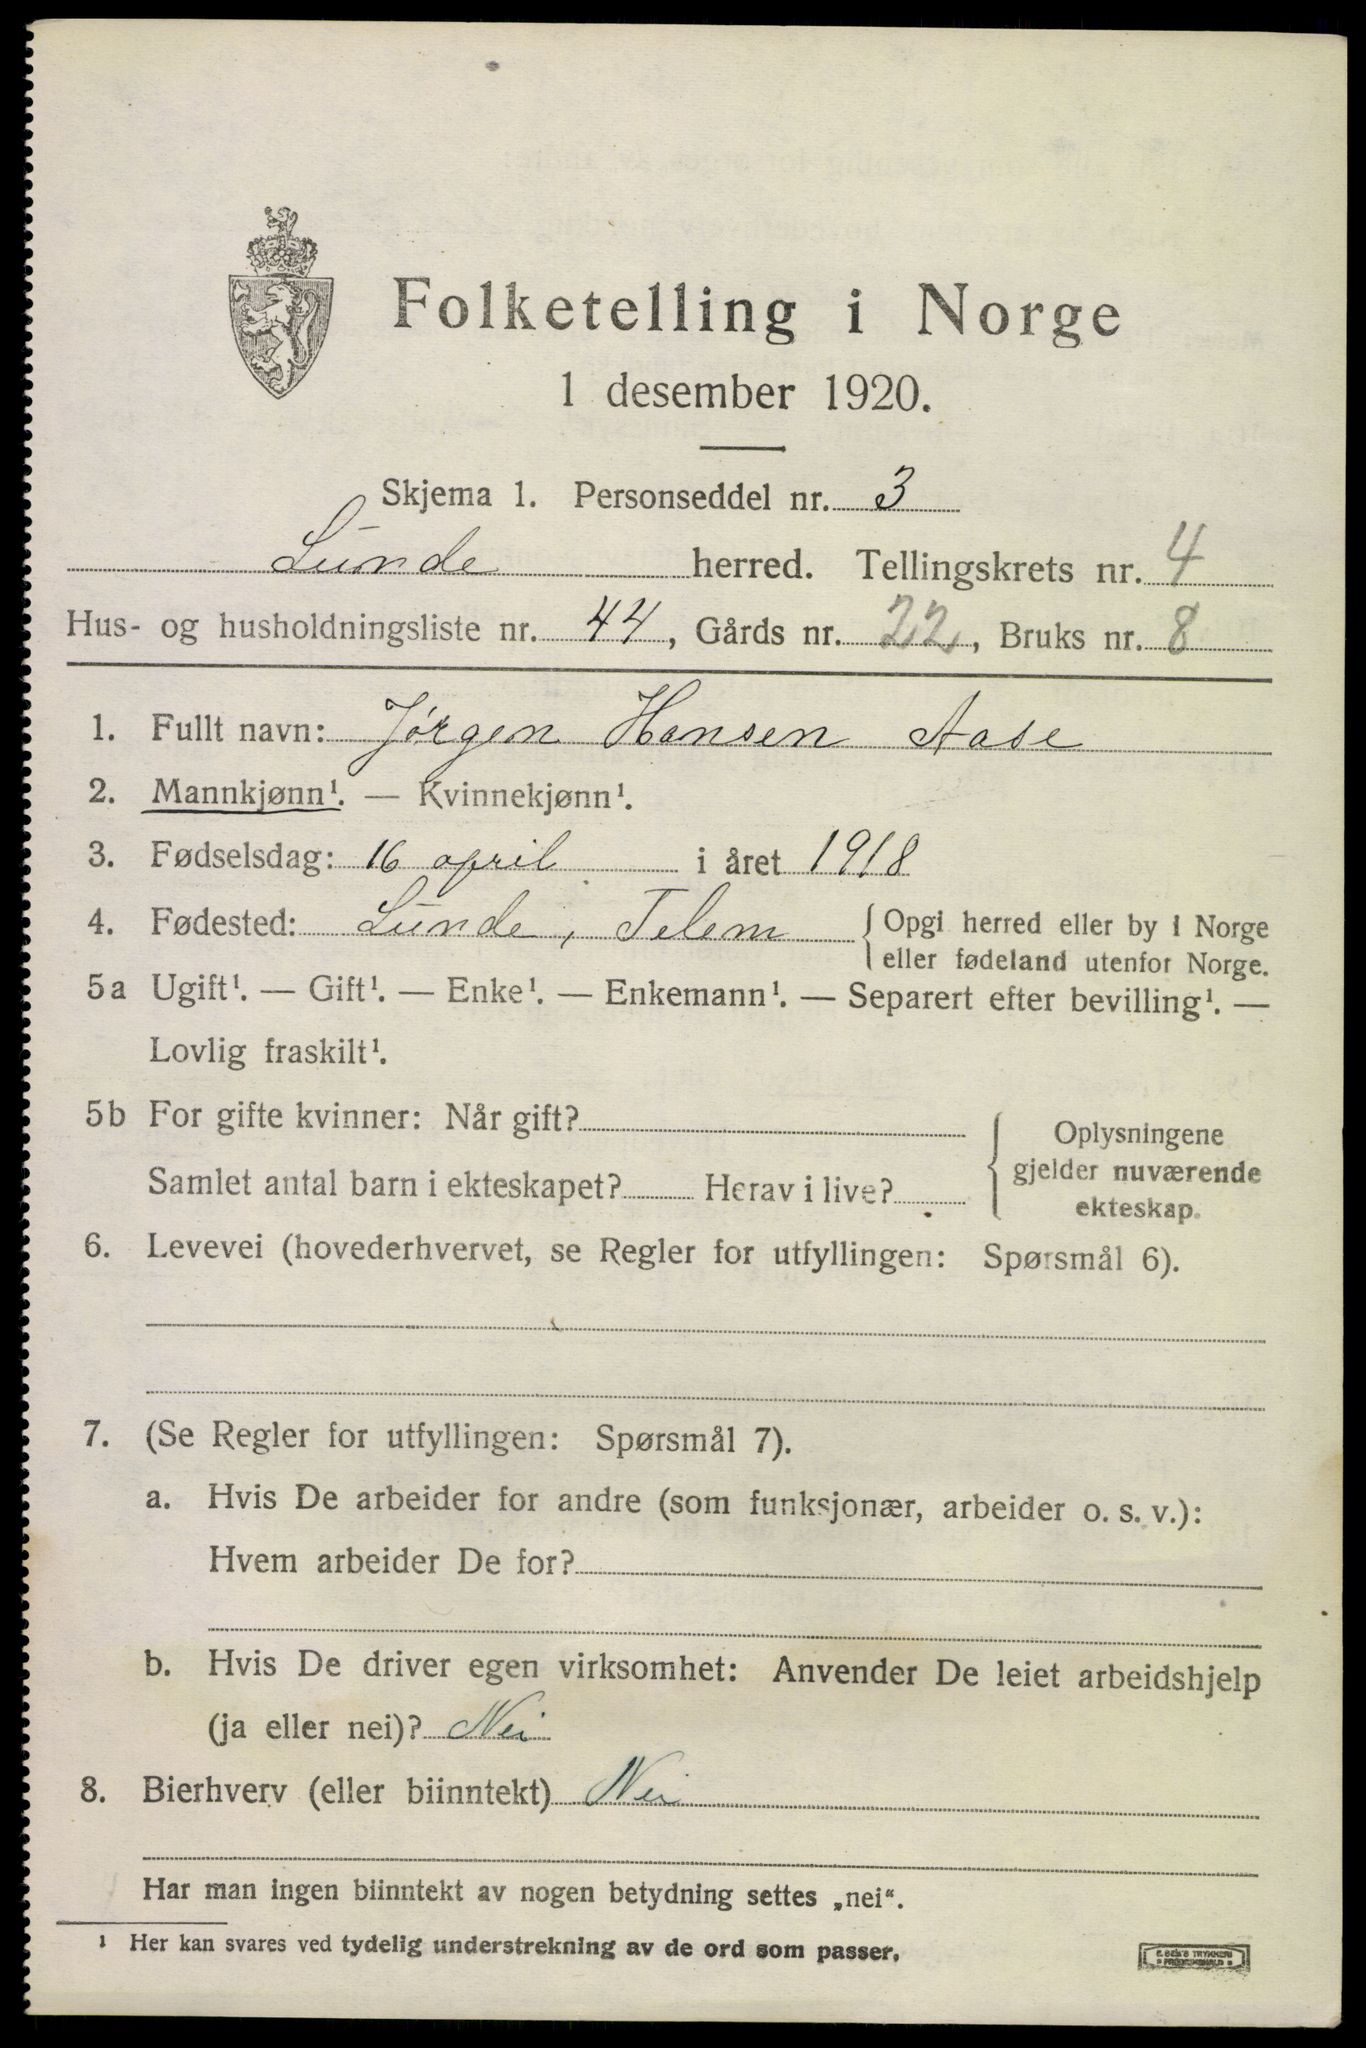 Folketelling i Norge
1 desember 1920.
Skjema 1. Personseddel nr. 3
Lunde herred. Tellingskrets nr. 4
Hus- og husholdningsliste nr. 44, Gårds nr. 22, Bruks nr. 8
1. Fullt navn: Jørgen Hansen Aase
2. Mannkjønn¹. — Kvinnekjønn¹.
3. Fødselsdag: 16 april i året 1918
4. Fødested: Lunde, Telem { Opgi herred eller by i Norge
eller fødeland utenfor Norge.
5a Ugift¹. — Gift¹. — Enke¹. — Enkemann¹. — Separert efter bevilling¹. —
Lovlig fraskilt¹.
5b For gifte kvinner: Når gift?
Samlet antal barn i ekteskapet? Herav i live?
{ Oplysningene
gjelder nuværende
ekteskap.
6. Levevei (hovederhvervet, se Regler for utfyllingen: Spørsmål 6).
7. (Se Regler for utfyllingen: Spørsmål 7).
a. Hvis De arbeider for andre (som funksjonær, arbeider o. s. v.):
Hvem arbeider De for?
b. Hvis De driver egen virksomhet: Anvender De leiet arbeidshjelp
(ja eller nei)? Nei
8. Bierhverv (eller biinntekt) Nei
Har man ingen biinntekt av nogen betydning settes „nei“.
¹ Her kan svares ved tydelig understrekning av de ord som passer.
E. SEM'S TRYKKERI
FREDRIKSHALD